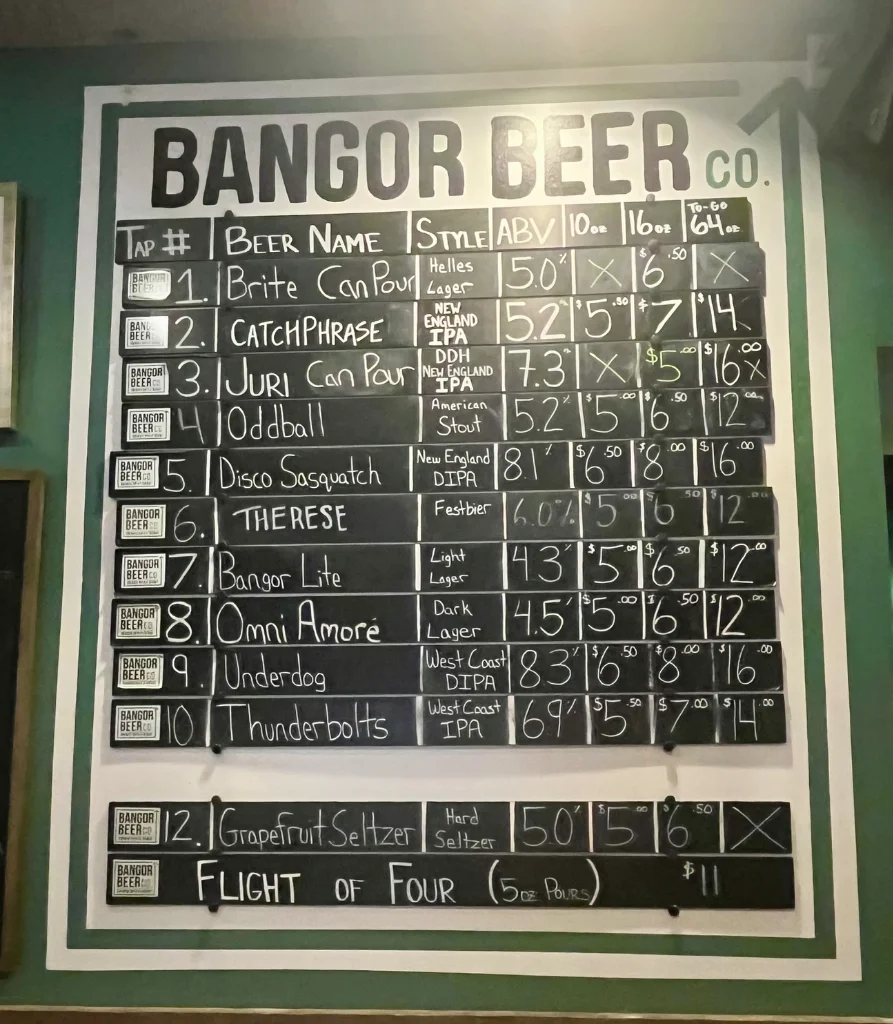 BANGOR BEER CO.
TAP # BEER NAME STYLE ABV 10oz 16oz TO-GO 64oz
BANGOR BEER CO 1. Brite Can Pour Helles Lager 5.0% X $6.50 X
BANGOR BEER CO 2. CATCHPHRASE NEW ENGLAND IPA 5.2% $5.50 $7 $14
BANGOR BEER CO 3. JURI Can Pour DDH NEW ENGLAND IPA 7.3% X $5.00 $16.00 X
BANGOR BEER CO 4 Oddball American Stout 5.2% $5.00 $6.50 $12.00
BANGOR BEER CO 5. Disco Sasquatch New England DIPA 8.1% $6.50 $8.00 $16.00
BANGOR BEER CO 6. THERESE Festbier 6.0% $5.00 $6.50 $12.00
BANGOR BEER CO 7. Bangor Lite Light Lager 4.3% $5.00 $6.50 $12.00
BANGOR BEER CO 8. Omni Amoré Dark Lager 4.5% $5.00 $6.50 $12.00
BANGOR BEER CO 9. Underdog West Coast DIPA 8.3% $6.50 $8.00 $16.00
BANGOR BEER CO 10 Thunderbolts West Coast IPA 6.9% $5.50 $7.00 $14.00
BANGOR BEER CO 12. Grapefruit Seltzer Hard Seltzer 5.0% $5.00 $6.50 X
BANGOR BEER CO FLIGHT OF FOUR (5oz POURS) $11